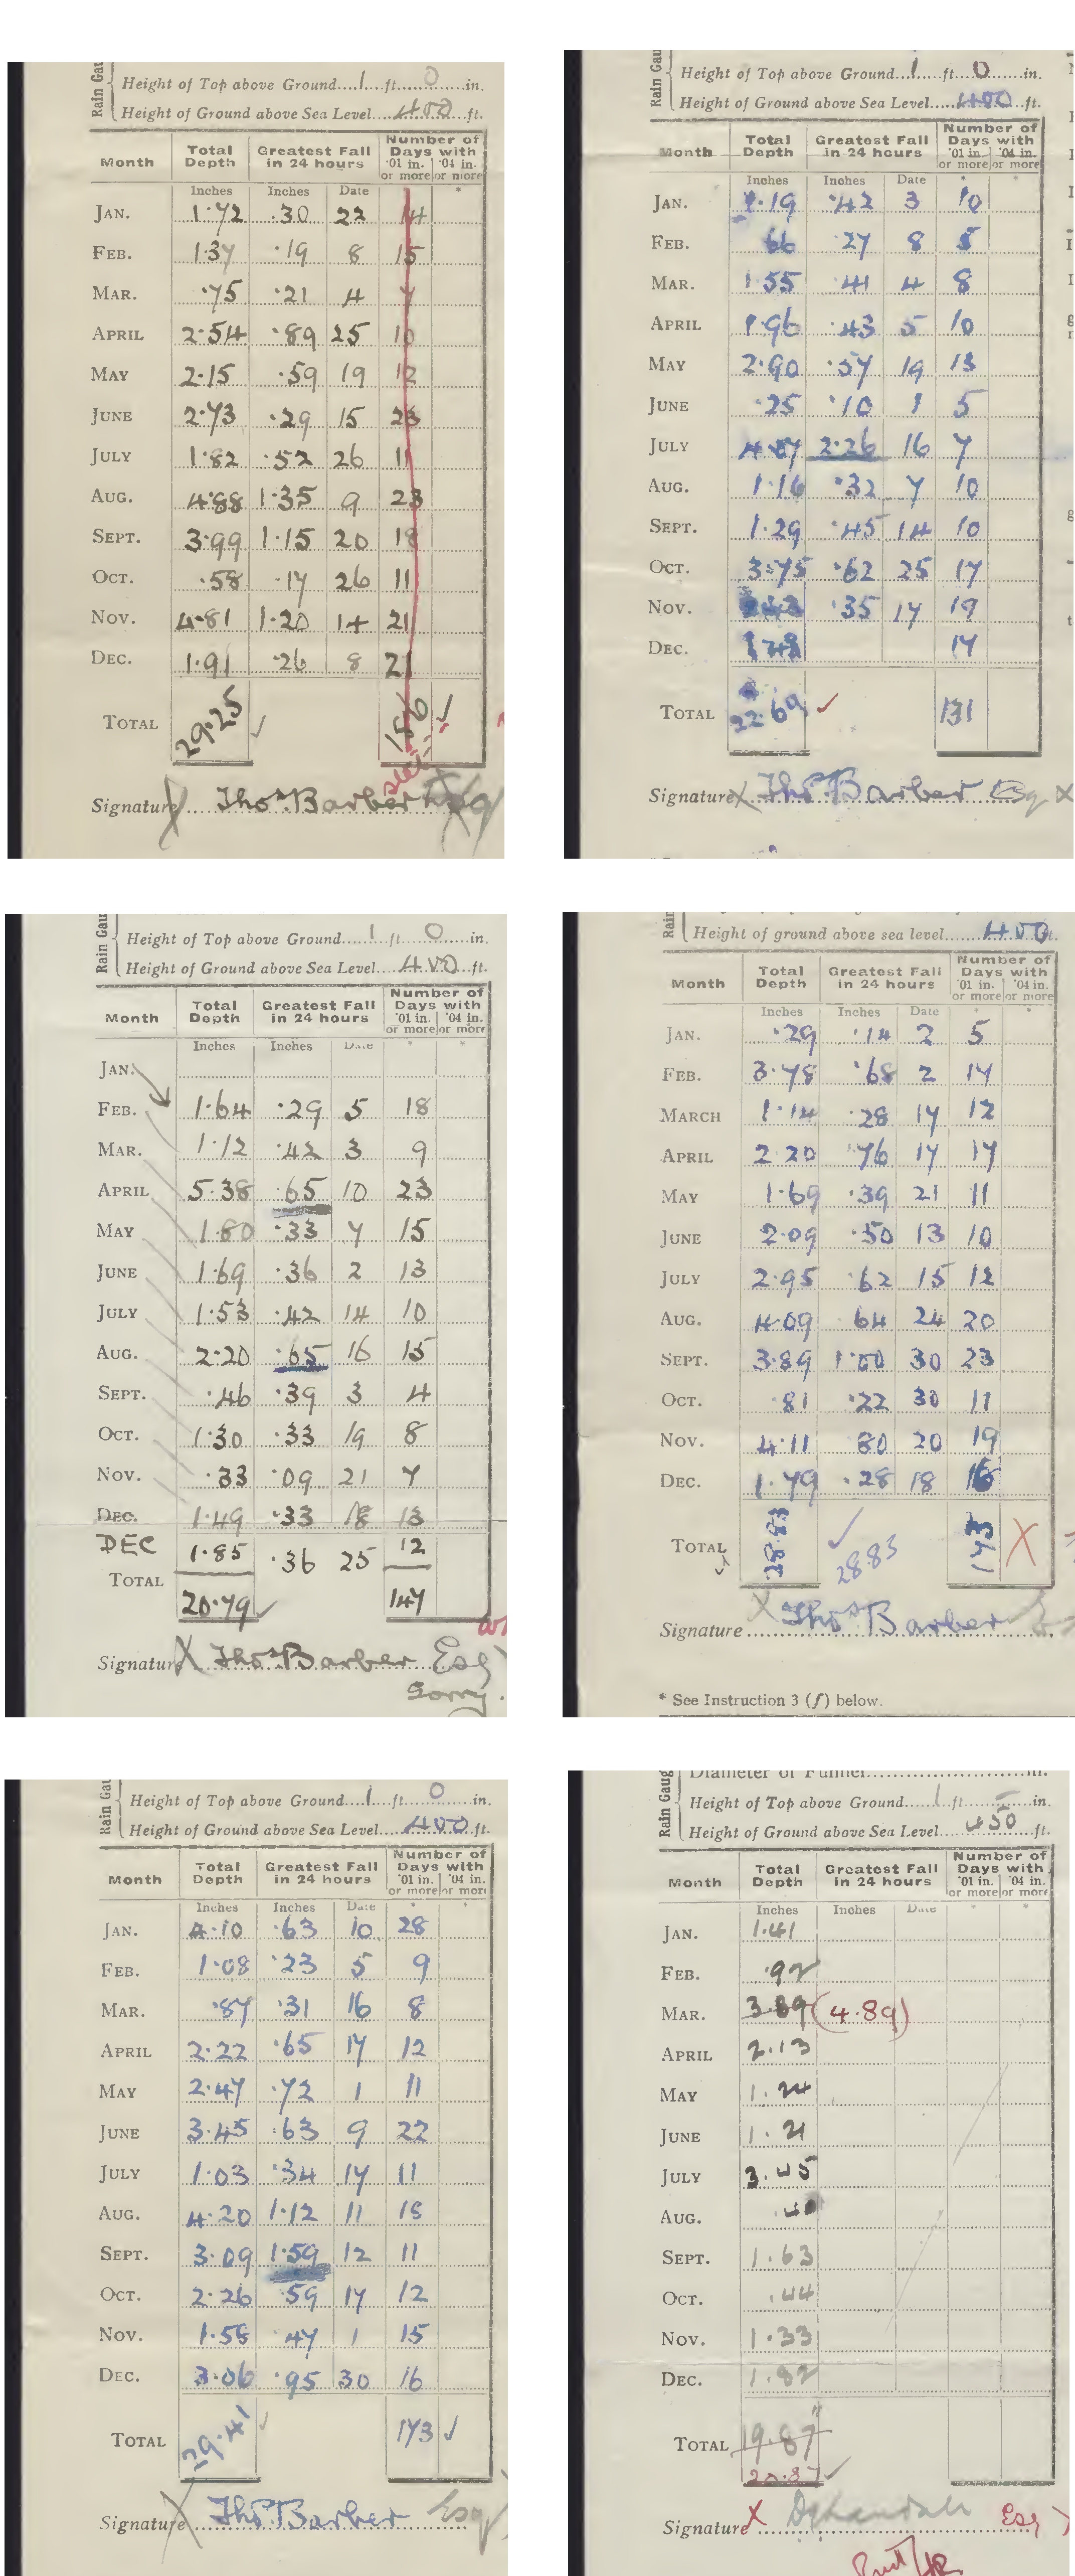 Rain Gau
Height of Top above Ground....1...ft...0...in.
Height of Ground above Sea Level....400...ft.
Month Total Depth Greatest Fall in 24 hours Number of Days with ·01 in. or more ·04 in. or more
Inches Inches Date *
JAN. 1·72 .30 22 14
FEB. 1·37 ·19 8 15
MAR. ·75 ·21 4 7
APRIL 2·54 ·89 25 10
MAY 2·15 ·59 19 12
JUNE 2·73 ·29 15 23
JULY 1·82 ·52 26 11
AUG. 4·88 1·35 9 23
SEPT. 3·99 1·15 20 18
OCT. ·58 ·17 26 11
NOV. 4·81 1·20 14 21
DEC. 1·91 ·26 8 21
TOTAL 29·25 186
Signature Thos. Barber Esq
Rain Gau
Height of Top above Ground....1...ft...0...in.
Height of Ground above Sea Level....400...ft.
Month Total Depth Greatest Fall in 24 hours Number of Days with ·01 in. or more ·04 in. or more
Inches Inches Date
JAN. 1·19 ·42 3 10
FEB. 66 ·27 8 5
MAR. 1·55 ·41 4 8
APRIL 1·96 ·43 5 10
MAY 2·90 ·57 19 13
JUNE ·25 ·10 1 5
JULY 4·07 2·26 16 7
AUG. 1·16 ·32 7 10
SEPT. 1·29 ·45 14 10
OCT. 3·75 ·62 25 17
NOV. 2·43 ·35 17 19
DEC. 1·48 17
TOTAL 22·69 131
Signature Thos. Barber Esq
Rain Gau
Height of Top above Ground....1...ft...0...in.
Height of Ground above Sea Level....400...ft.
Month Total Depth Greatest Fall in 24 hours Number of Days with ·01 in. or more ·04 in. or more
Inches Inches Date * *
JAN.
FEB. 1·64 ·29 5 18
MAR. 1·12 ·42 3 9
APRIL 5·38 ·65 10 23
MAY 1·80 ·33 7 15
JUNE 1·69 ·36 2 13
JULY 1·53 ·42 14 10
AUG. 2·20 ·65 16 15
SEPT. ·46 ·39 3 4
OCT. 1·30 ·33 19 8
NOV. ·33 ·09 21 7
DEC. 1·49 ·33 18 13
DEC 1·85 ·36 25 12
TOTAL 20·79 147
Signature Thos. Barber Esq
Sorry.
Rain
Height of ground above sea level.......400 ft.
Month Total Depth Greatest Fall in 24 hours Number of Days with ·01 in. or more ·04 in. or more
Inches Inches Date * *
JAN. ·29 ·14 2 5
FEB. 3·78 ·68 2 17
MARCH 1·14 ·28 17 12
APRIL 2·20 ·76 17 17
MAY 1·69 ·39 21 11
JUNE 2·09 ·50 13 10
JULY 2·95 ·62 15 12
AUG. 4·09 64 24 20
SEPT. 3·89 1·00 30 23
OCT. 81 ·22 30 11
NOV. 4·11 80 20 19
DEC. 1·79 ·28 18 16
TOTAL 28·83 173
28.83
Signature Thos. Barber
* See Instruction 3 (f) below.
Rain Gau
Height of Top above Ground....1...ft...0...in.
Height of Ground above Sea Level....400...ft.
Month Total Depth Greatest Fall in 24 hours Number of Days with ·01 in. or more ·04 in. or more
Inches Inches Date * *
JAN. 4·10 ·63 10 28
FEB. 1·08 ·23 5 9
MAR. ·87 ·31 16 8
APRIL 2·22 ·65 17 12
MAY 2·47 ·72 1 11
JUNE 3·45 ·63 9 22
JULY 1·03 ·34 17 11
AUG. 4·20 1·12 11 18
SEPT. 3·09 1·59 12 11
OCT. 2·26 59 17 12
NOV. 1·58 47 1 15
DEC. 3·06 ·95 30 16
TOTAL 29·41 173
Signature Thos. Barber Esq
Rain Gaug
Diameter of Funnel...................in.
Height of Top above Ground....1...ft...–...in.
Height of Ground above Sea Level....450...ft.
Month Total Depth Greatest Fall in 24 hours Number of Days with ·01 in. or more ·04 in. or more
Inches Inches Date * *
JAN. 1.41
FEB. ·92
MAR. 3.89 (4.89)
APRIL 2.13
MAY 1.24
JUNE 1.21
JULY 3.45
AUG. .40
SEPT. 1.63
OCT. .44
NOV. 1.33
DEC. 1.82
TOTAL 19.87"
20.87
Signature Esq